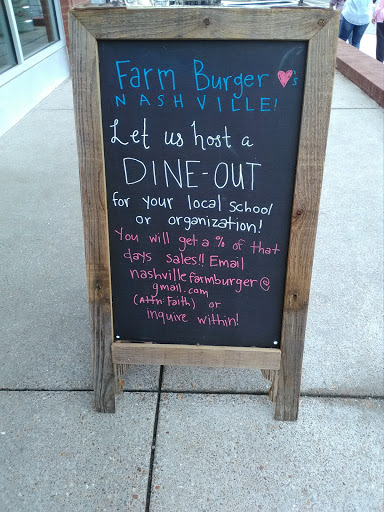 Farm Burger ♥'s
NASHVILLE!
Let us host a
DINE-OUT
for your local school
or organization!
You will get a % of that
days sales!! Email
nashvillefarmburger@
gmail.com
(Attn: Faith) or
inquire within!